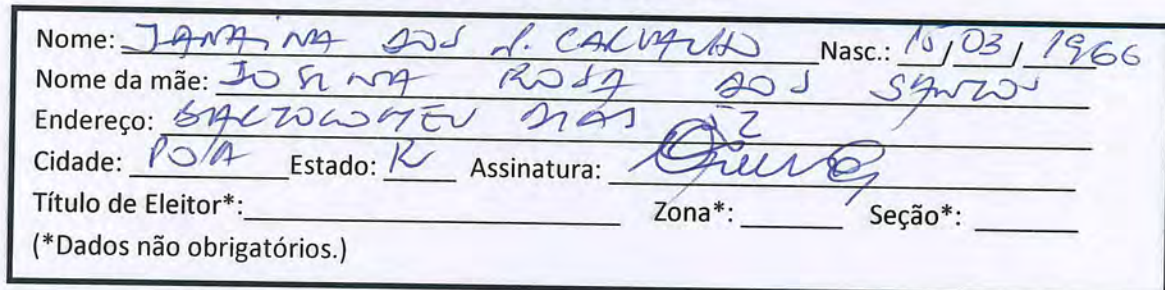 Nome: JANAINA DOS S. CARVALHO Nasc.: 15/03/1966
Nome da mãe: JOSINA ROSA DOS SANTOS
Endereço: BARTOLOMEU DIAS
Cidade: POA Estado: Assinatura:
Título de Eleitor*: Zona*: Seção*:
(*Dados não obrigatórios.)